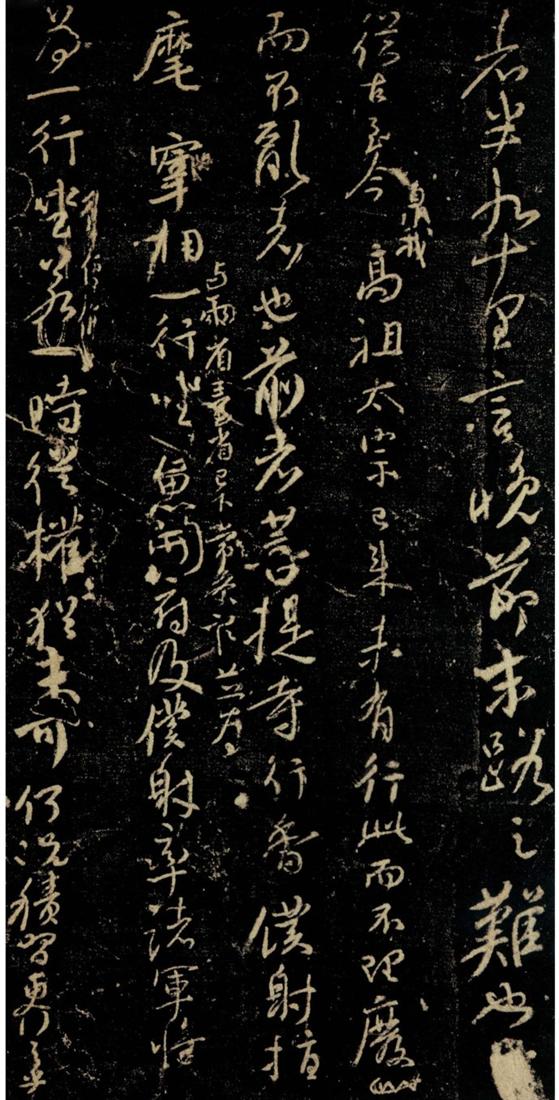 者半九十里言晚節末路之難也
從古至今暨我高祖太宗已來未有行此而不理廢
而不亂者也前者菩提寺行香僕射指
麾宰相與兩省臺省已下常參官並為一行坐魚開府及僕射率諸軍將
為一行坐若一時從權猶未可何況積習更行之乎